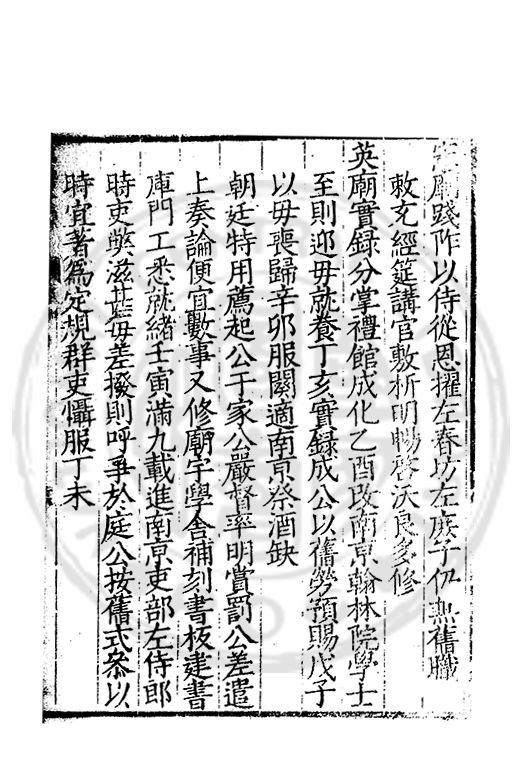 廟踐阼以侍從恩擢左春坊左庶子仍兼舊職
敕充經筵講官敷析明暢啓沃良多修
英廟實錄分掌禮館成化乙酉改南京翰林院學士
至則迎毋就養丁亥實錄成公以舊勞預賜戊子
以毋喪歸辛卯服闋適南京祭酒缺
朝廷特用薦起公于家公嚴督率明賞罰公差遣
上奏論便宜數事又修廟宇學舍補刻書板建書
庫門工悉就緒壬寅滿九載進南京吏部左侍郎
時吏弊滋甚毋差撥則呼爭於庭公按舊式叅以
時宜著爲定規群吏懾服丁未